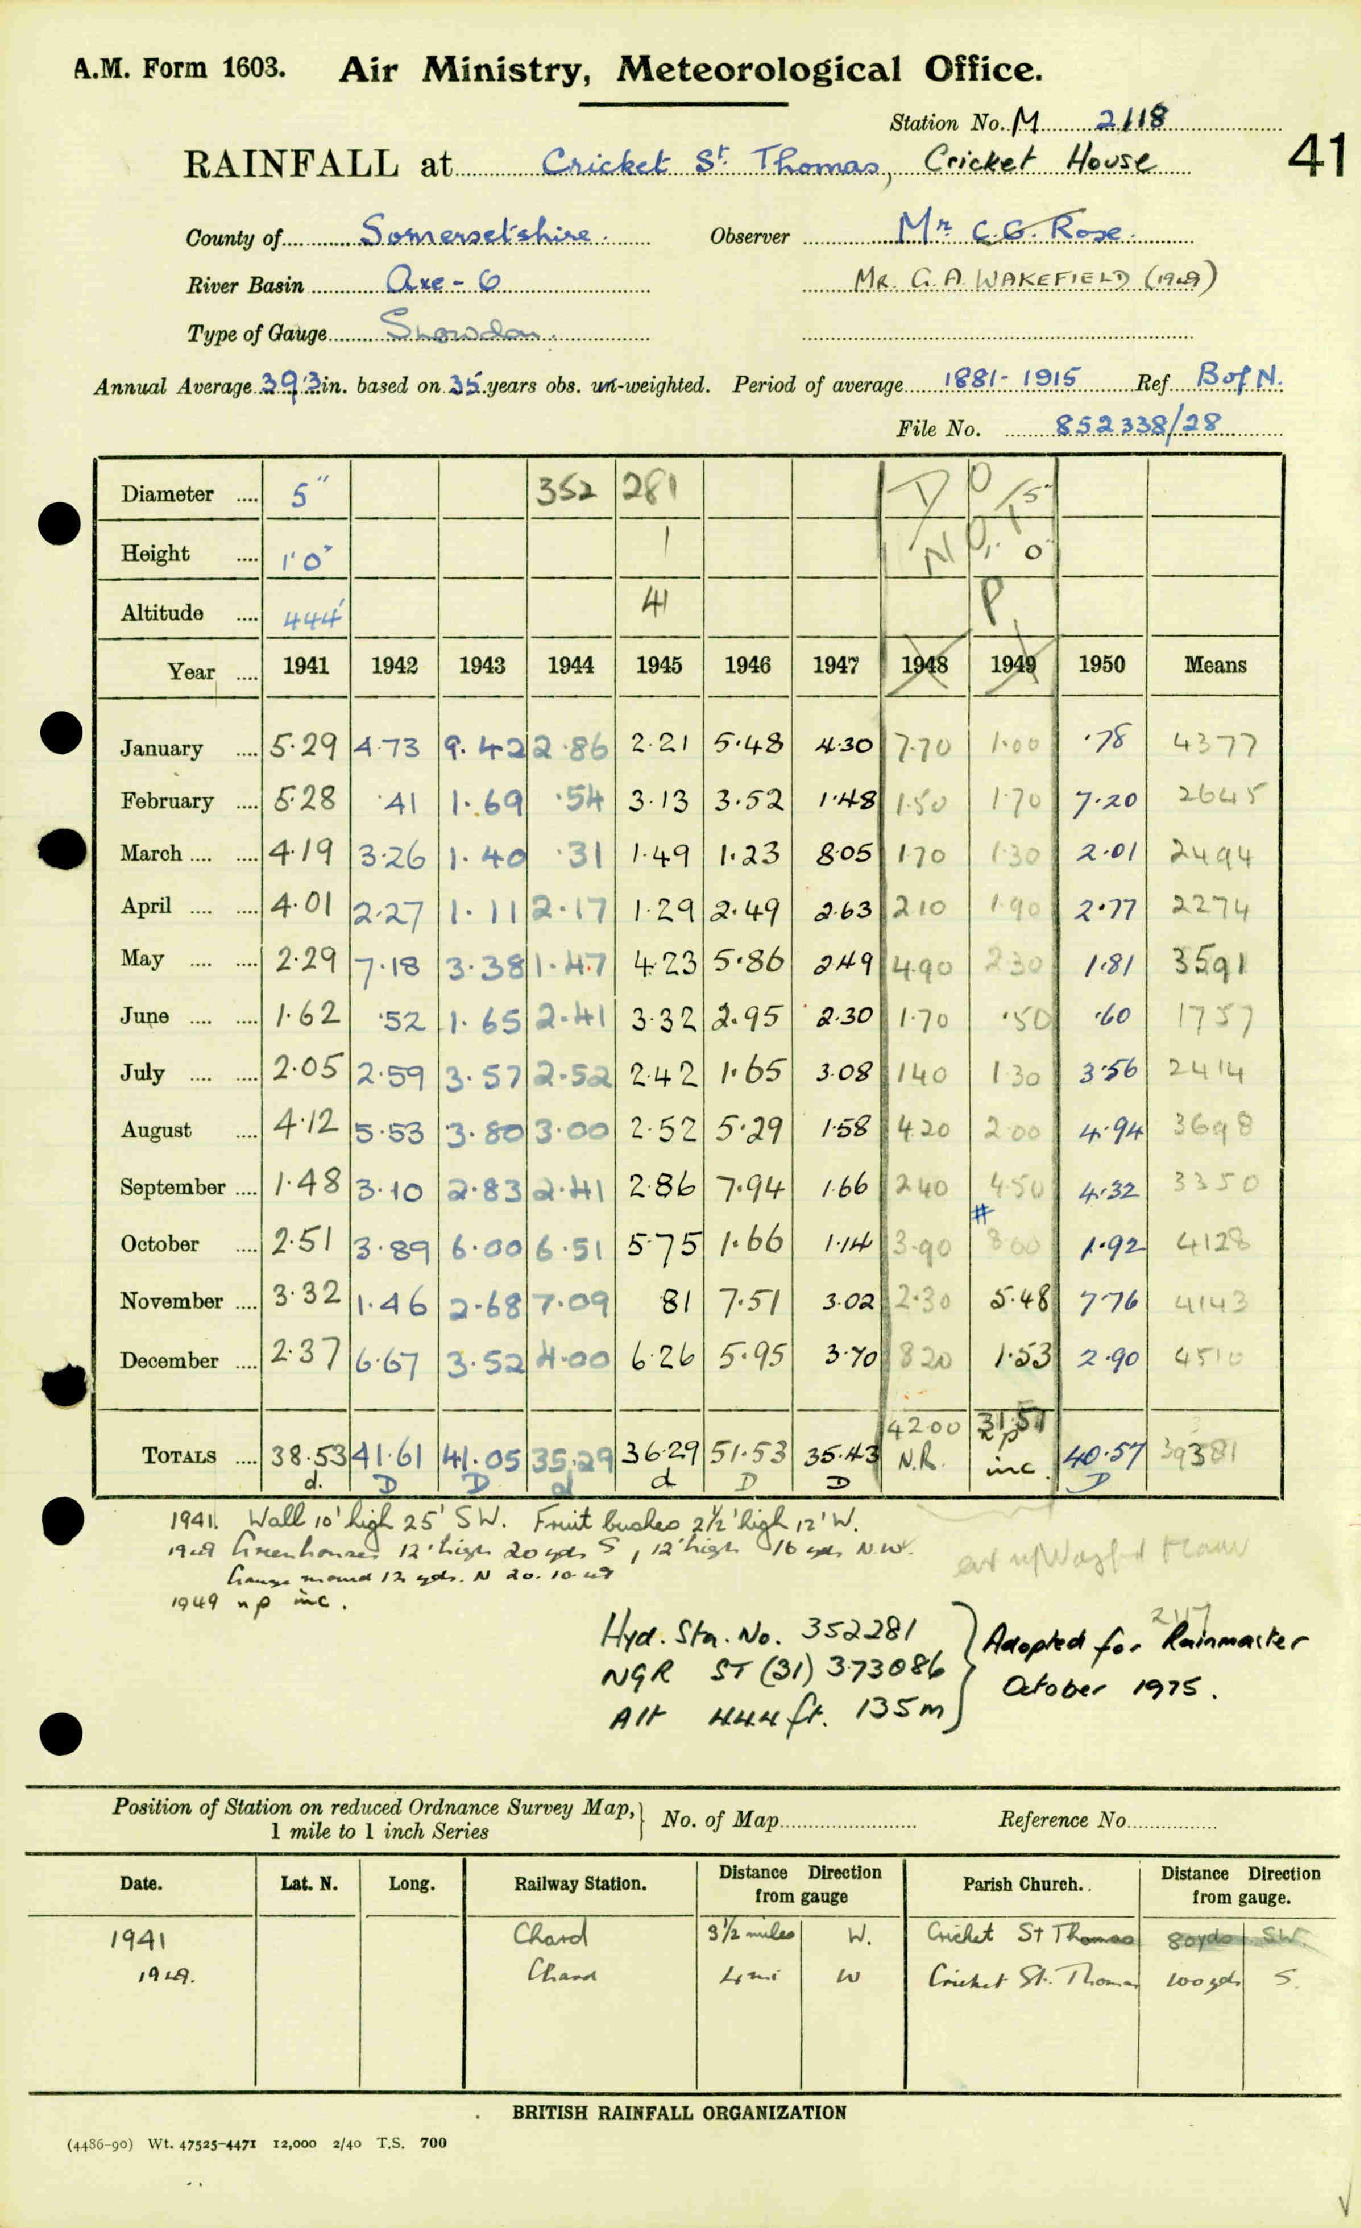 A.M. Form 1603. Air Ministry, Meteorological Office.
Station No. M 2118
41
RAINFALL at Cricket St. Thomas, Cricket House
County of Somersetshire. Observer Mr C.G. Rose.
River Basin Axe - 6 MR. G. A. WAKEFIELD (1949)
Type of Gauge Snowdon.
Annual Average 39.3 in. based on 35 years obs. un-weighted. Period of average 1881-1915 Ref B of N.
File No. 852338/28
Diameter .... 5" 352 281
Height .... 1'0"
Altitude .... 444' 41
Year .... 1941 1942 1943 1944 1945 1946 1947 1948 1949 1950 Means
January .... 5.29 4.73 9.42 2.86 2.21 5.48 4.30 7.70 1.00 .78 4377
February .... 5.28 .41 1.69 .54 3.13 3.52 1.48 1.50 1.70 7.20 2645
March .... .... 4.19 3.26 1.40 .31 1.49 1.23 8.05 1.70 1.30 2.01 2494
April .... .... 4.01 2.27 1.11 2.17 1.29 2.49 2.63 2.10 1.90 2.77 2274
May .... .... 2.29 7.18 3.38 1.47 4.23 5.86 2.49 4.90 2.30 1.81 3591
June .... .... 1.62 .52 1.65 2.41 3.32 2.95 2.30 1.70 .50 .60 1757
July .... .... 2.05 2.59 3.57 2.52 2.42 1.65 3.08 1.40 1.30 3.56 2414
August .... 4.12 5.53 3.80 3.00 2.52 5.29 1.58 4.20 2.00 4.94 3698
September .... 1.48 3.10 2.83 2.41 2.86 7.94 1.66 2.40 4.50 4.32 3350
October .... 2.51 3.89 6.00 6.51 5.75 1.66 1.14 3.90 # 8.00 1.92 4128
November .... 3.32 1.46 2.68 7.09 .81 7.51 3.02 2.30 5.48 7.76 4143
December .... 2.37 6.67 3.52 4.00 6.26 5.95 3.70 8.20 1.53 2.90 4510
42.00 31.51
TOTALS .... 38.53 41.61 41.05 35.29 36.29 51.53 35.43 N.R. np inc. 40.57 39381
d. D D d d D D D
1941. Wall 10' high 25' SW. Fruit bushes 2½' high 12' W.
1949 Greenhouses 12' high 20 yds S, 12' high 16 yds N.W.
Gauge moved 12 yds. N 20.10.49
1949 np inc.
Hyd. Stn. No. 352281
NGR ST (31) 373086
Alt 444 ft. 135m
Adopted for Rainmaster
October 1975.
Position of Station on reduced Ordnance Survey Map, 1 mile to 1 inch Series No. of Map Reference No.
Date. Lat. N. Long. Railway Station. Distance Direction from gauge Parish Church. Distance Direction from gauge.
1941 Chard 3½ miles W. Cricket St Thomas 80yds SW.
1949. Chard 4mi W Cricket St. Thomas 100yds S.
BRITISH RAINFALL ORGANIZATION
(4486-90) Wt. 47525-4471 12,000 2/40 T.S. 700